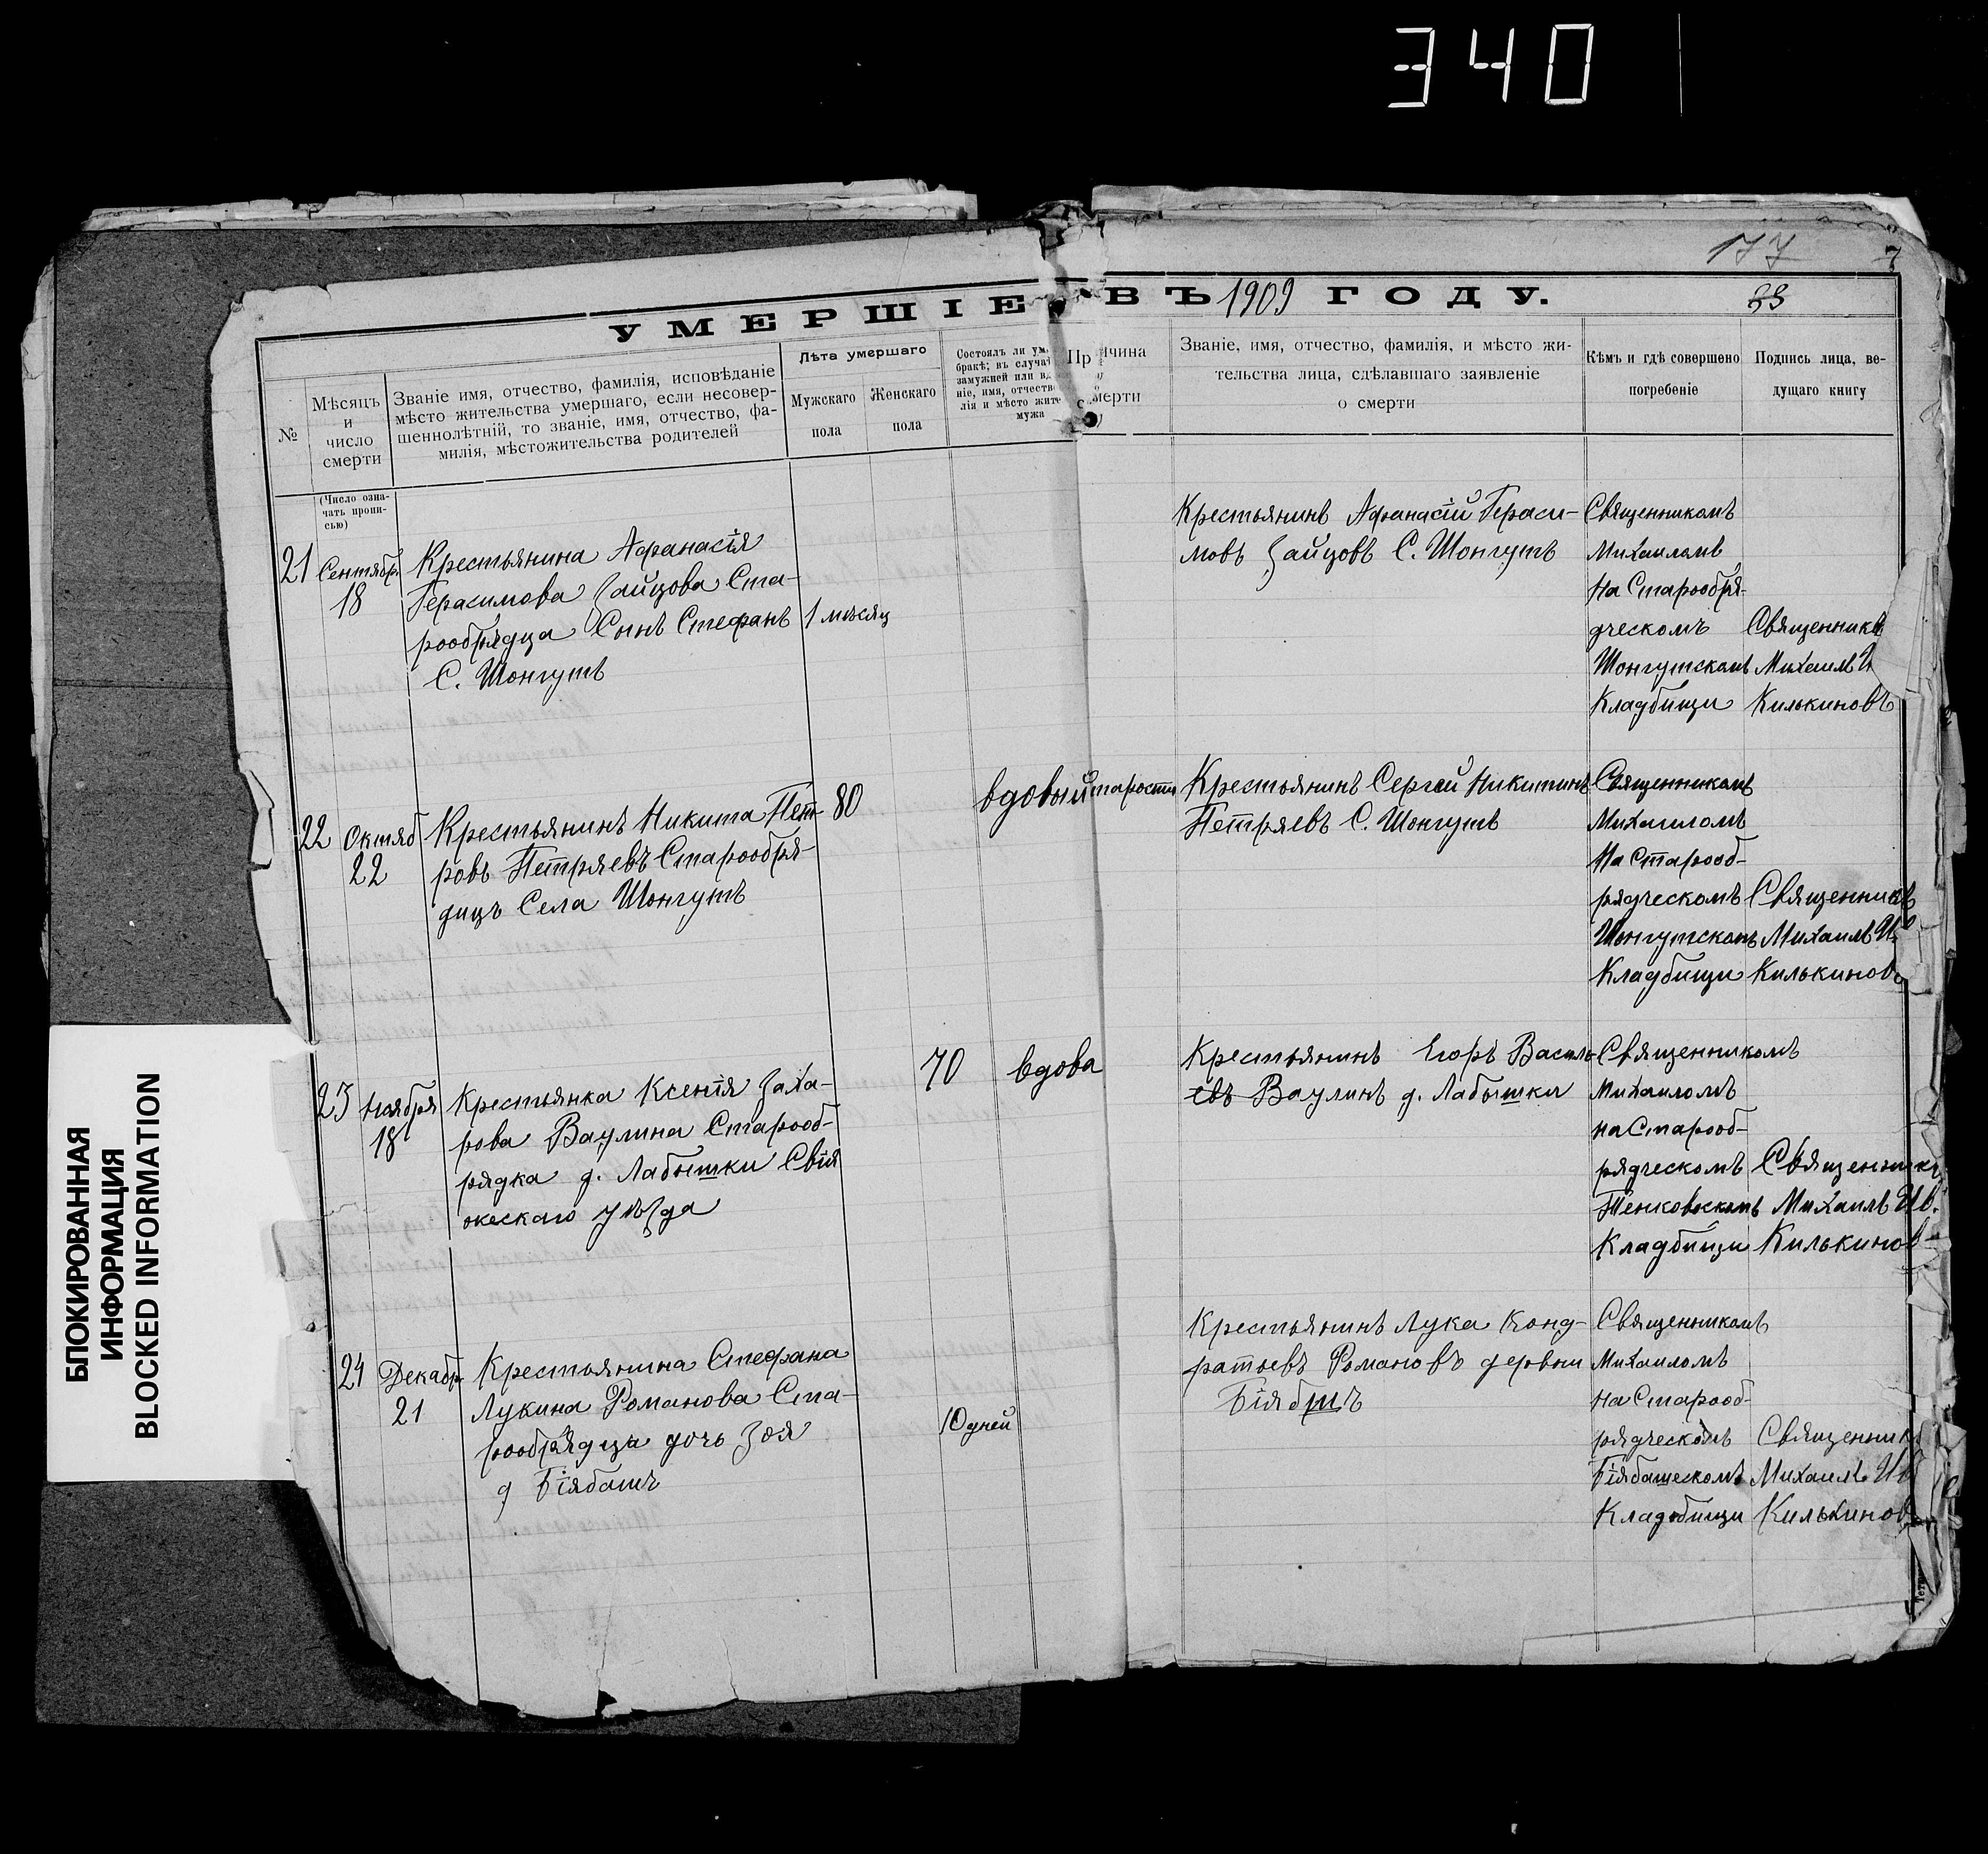 340
177
7
УМЕРШІЕ ВЪ 1909 ГОДУ.
33
№
Мѣсяцъ
и
число
смерти
(Число озна-
чать пропи-
сью)
Званіе имя, отчество, фамилія, исповѣданіе
мѣсто жительства умершаго, если несовер-
шеннолѣтній, то званіе, имя, отчество, фа-
милія, мѣстожительства родителей
Лѣта умершаго
Мужскаго
пола
Женскаго
пола
Состоялъ ли ум
бракѣ; въ случа
замужней или вд
ніе, имя, отчеств
лія и мѣсто жите
мужа
Причина
смерти
Званіе, имя, отчество, фамилія, и мѣсто жи-
тельства лица, сдѣлавшаго заявленіе
о смерти
Кѣмъ и гдѣ совершено
погребеніе
Подпись лица, ве-
дущаго книгу
21
Сентябр
18
Крестьянина Афанасія
Герасимова Зайцова Ста-
рообрядца Сынъ Стефанъ
С. Шонгутъ
1 мѣсяц
Крестьянинъ Афанасій Гераси-
мовъ Зайцовъ С. Шонгутъ
Священникомъ
Михаиломъ
На Старообря-
дческомъ
Шонгутскомъ
Кладбищи
Священникъ
Михаилъ И
Килькиновъ
22
Октяб
22
Крестьянинъ Никита Пет-
ровъ Петряевъ Старообря-
дицъ Села Шонгутъ
80
вдовый
старости
Крестьянинъ Сергей Никитинъ
Петряевъ С. Шонгутъ
Священникомъ
Михаиломъ
На Старооб-
рядческомъ
Шонгутскомъ
Кладбищи
Священникъ
Михаилъ Ив
Килькиновъ
23
Ноября
18
Крестьянка Ксенія Заха-
рова Ваулина Старооб-
рядка д. Лабышки Свія
жскаго уѣзда
70
вдова
Крестьянинъ Егоръ Василь-
евъ Ваулинъ д. Лабышки
Священникомъ
Михаиломъ
на Старооб-
рядческомъ
Тенковскомъ
Кладбищи
Священникъ
Михаилъ Ив.
Килькинов
24
Декабр
21
Крестьянина Стефана
Лукина Романова Ста-
рообрядца дочь Зоя
д Біябашъ
10 дней
Крестьянинъ Лука Конд-
ратьевъ Романовъ деровни
Біябшъ
Священникомъ
Михаиломъ
на Старооб-
рядческомъ
Біябашескомъ
Кладбищи
Священник
Михаилъ Ив
Килькинов
БЛОКИРОВАННАЯ
ИНФОРМАЦИЯ
BLOCKED INFORMATION